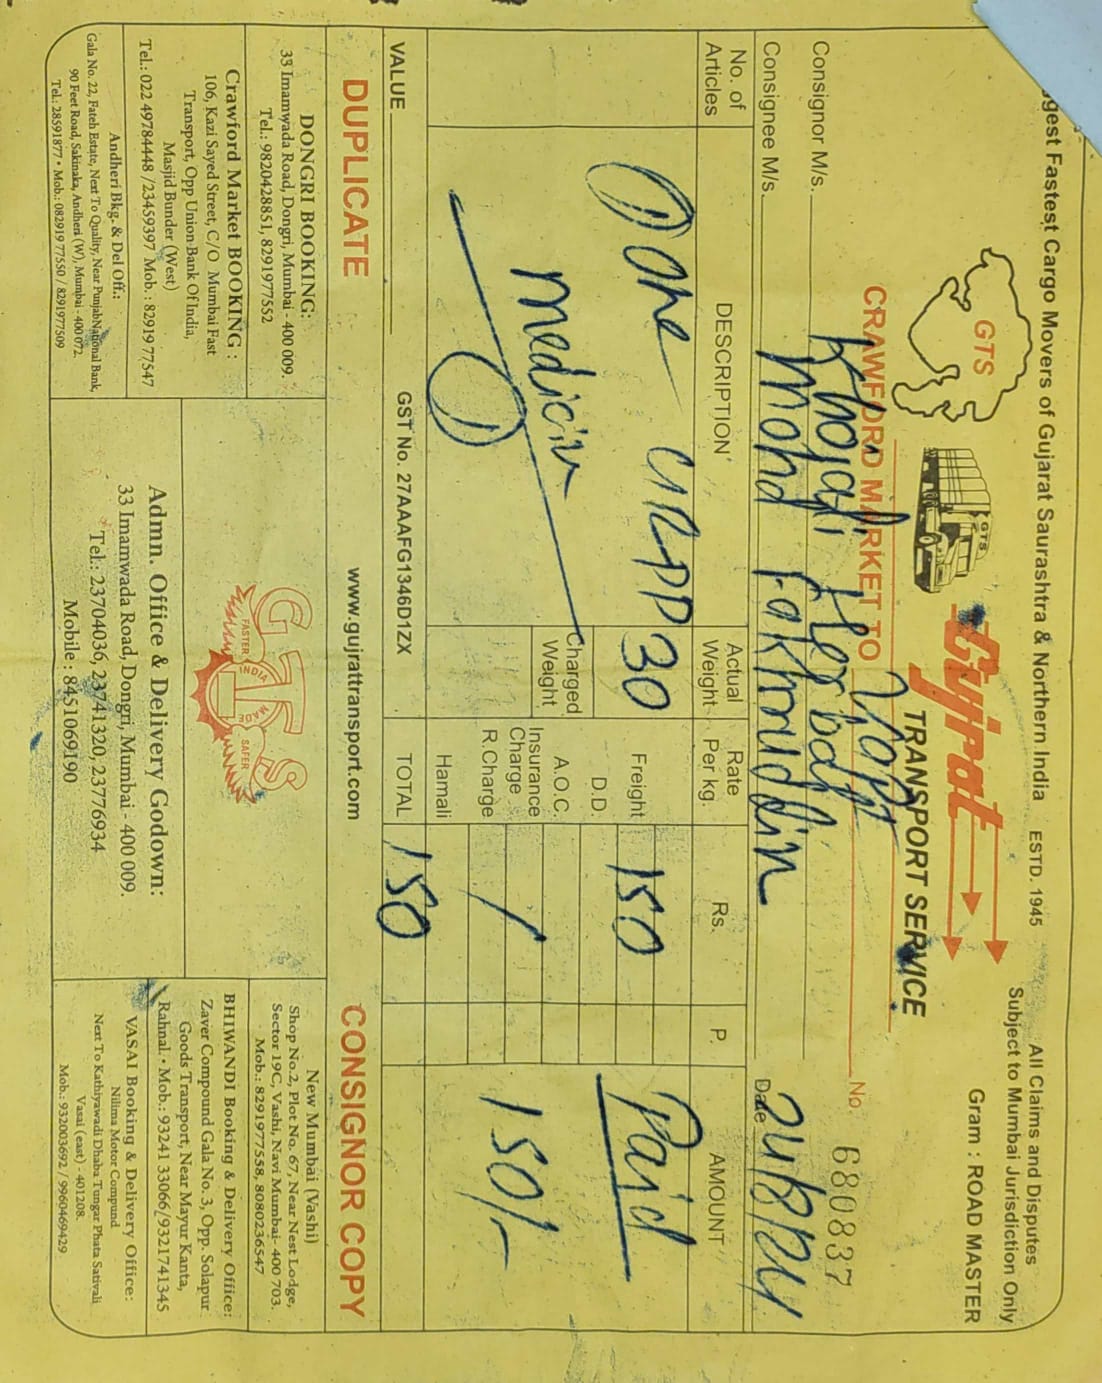 ggest Fastest Cargo Movers of Gujarat Saurashtra & Northern India ESTD. 1945
All Claims and Disputes
Subject to Mumbai Jurisdiction Only
Gram : ROAD MASTER
GTS
GTS
Gujrat
TRANSPORT SERVICE
CRAWFORD MARKET TO
No. 680837
Consignor M/s. Khojati Herbal
Consignee M/s. Mohd Fakhruddin
Date 24/8/24
No. of Articles
DESCRIPTION
Actual Weight
Rate Per kg.
Rs.
P.
AMOUNT
① One
30
Freight 150
Paid
D.D.
medicin
Charged Weight
A.O.C.
Insurance Charge
R.Charge
150/-
①
Hamali
VALUE
GST No. 27AAAFG1346D1ZX
TOTAL 150
DUPLICATE
www.gujrattransport.com
CONSIGNOR COPY
DONGRI BOOKING:
33 Imamwada Road, Dongri, Mumbai - 400 009.
Tel.: 9820428851, 8291977552
Crawford Market BOOKING :
106, Kazi Sayed Street, C/O Mumbai Fast
Transport, Opp Union Bank Of India,
Masjid Bunder (West)
Tel.: 022 49784448 /23459397 Mob. : 82919 77547
Andheri Bkg. & Del Off.:
Gala No. 22, Fateh Estate, Next To Quality, Near Punjab National Bank,
90 Feet Road, Sakinaka, Andheri (W), Mumbai - 400 072.
Tel.: 28591877 • Mob.: 082919 77550 / 8291977509
GTS
FASTER
INDIA
MADE
SAFER
Admn. Office & Delivery Godown:
33 Imamwada Road, Dongri, Mumbai - 400 009.
Tel.: 23704036, 23741320, 23776934
Mobile : 8451069190
New Mumbai (Vashi)
Shop No.2, Plot No. 67, Near Nest Lodge,
Sector 19C, Vashi, Navi Mumbai- 400 703.
Mob.: 8291977558, 8080236547
BHIWANDI Booking & Delivery Office:
Zaver Compound Gala No. 3, Opp. Solapur
Goods Transport, Near Mayur Kanta,
Rahnal. • Mob.: 93241 33066/9321741345
VASAI Booking & Delivery Office:
Nilima Motor Compund
Next To Kathiyawadi Dhaba Tungar Phata Sativali
Vasai (east) - 401208.
Mob.: 932003692 / 9960469429